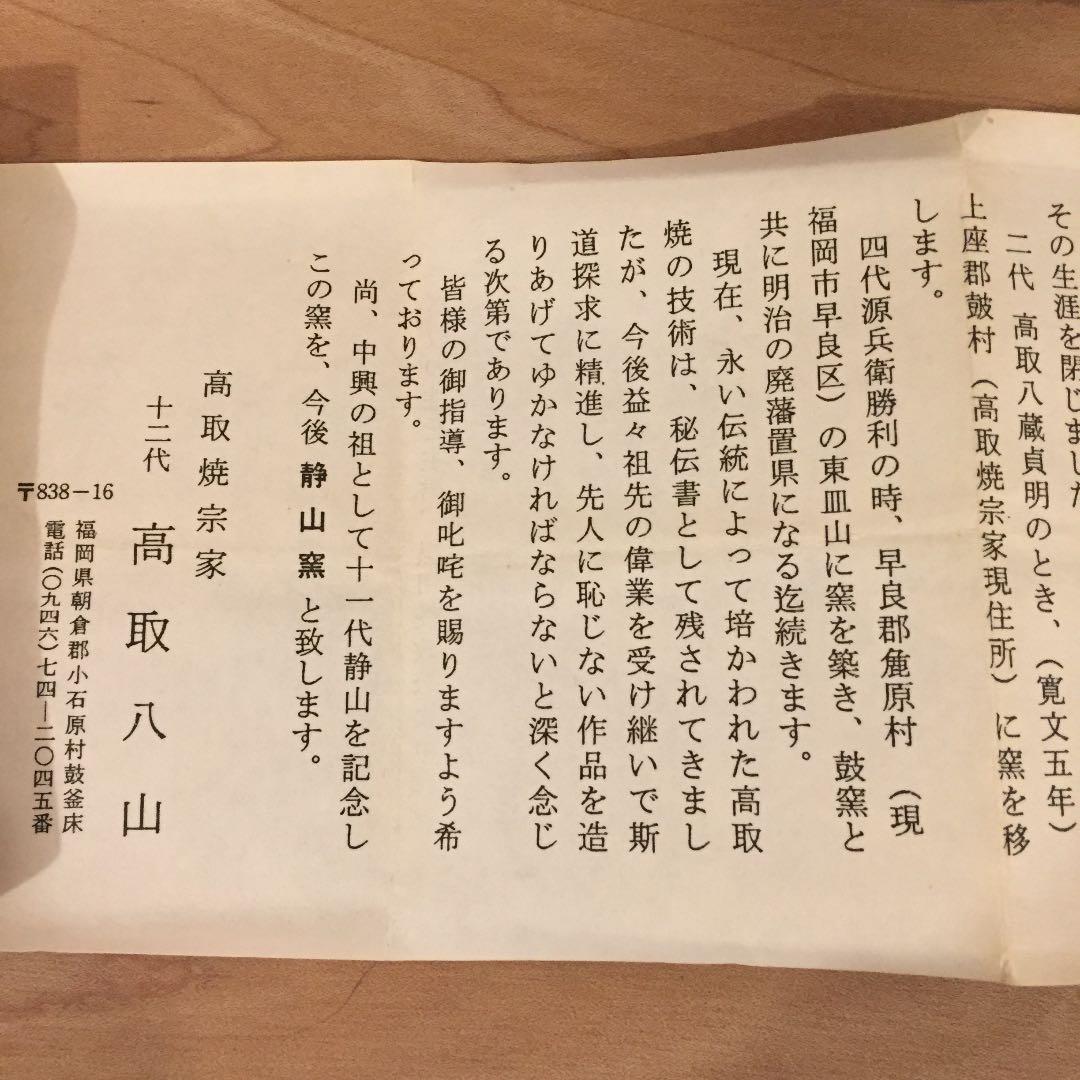 その生涯を閉じました
二代 高取八蔵貞明のとき、(寛文五年)
上座郡皷村(高取焼宗家現住所)に窯を移
します。
四代源兵衛勝利の時、早良郡麁原村(現
福岡市早良区)の東皿山に窯を築き、鼓窯と
共に明治の廃藩置県になる迄続きます。
現在、永い伝統によって培かわれた高取
焼の技術は、秘伝書として残されてきまし
たが、今後益々祖先の偉業を受け継いで斯
道探求に精進し、先人に恥じない作品を造
りあげてゆかなければならないと深く念じ
る次第であります。
皆様の御指導、御叱咤を賜りますよう希
っております。
尚、中興の祖として十一代静山を記念し
この窯を、今後 静山窯 と致します。
高取焼宗家
十二代 高取八山
〒838-16
福岡県朝倉郡小石原村鼓釜床
電話(〇九四六)七四―二〇四五番